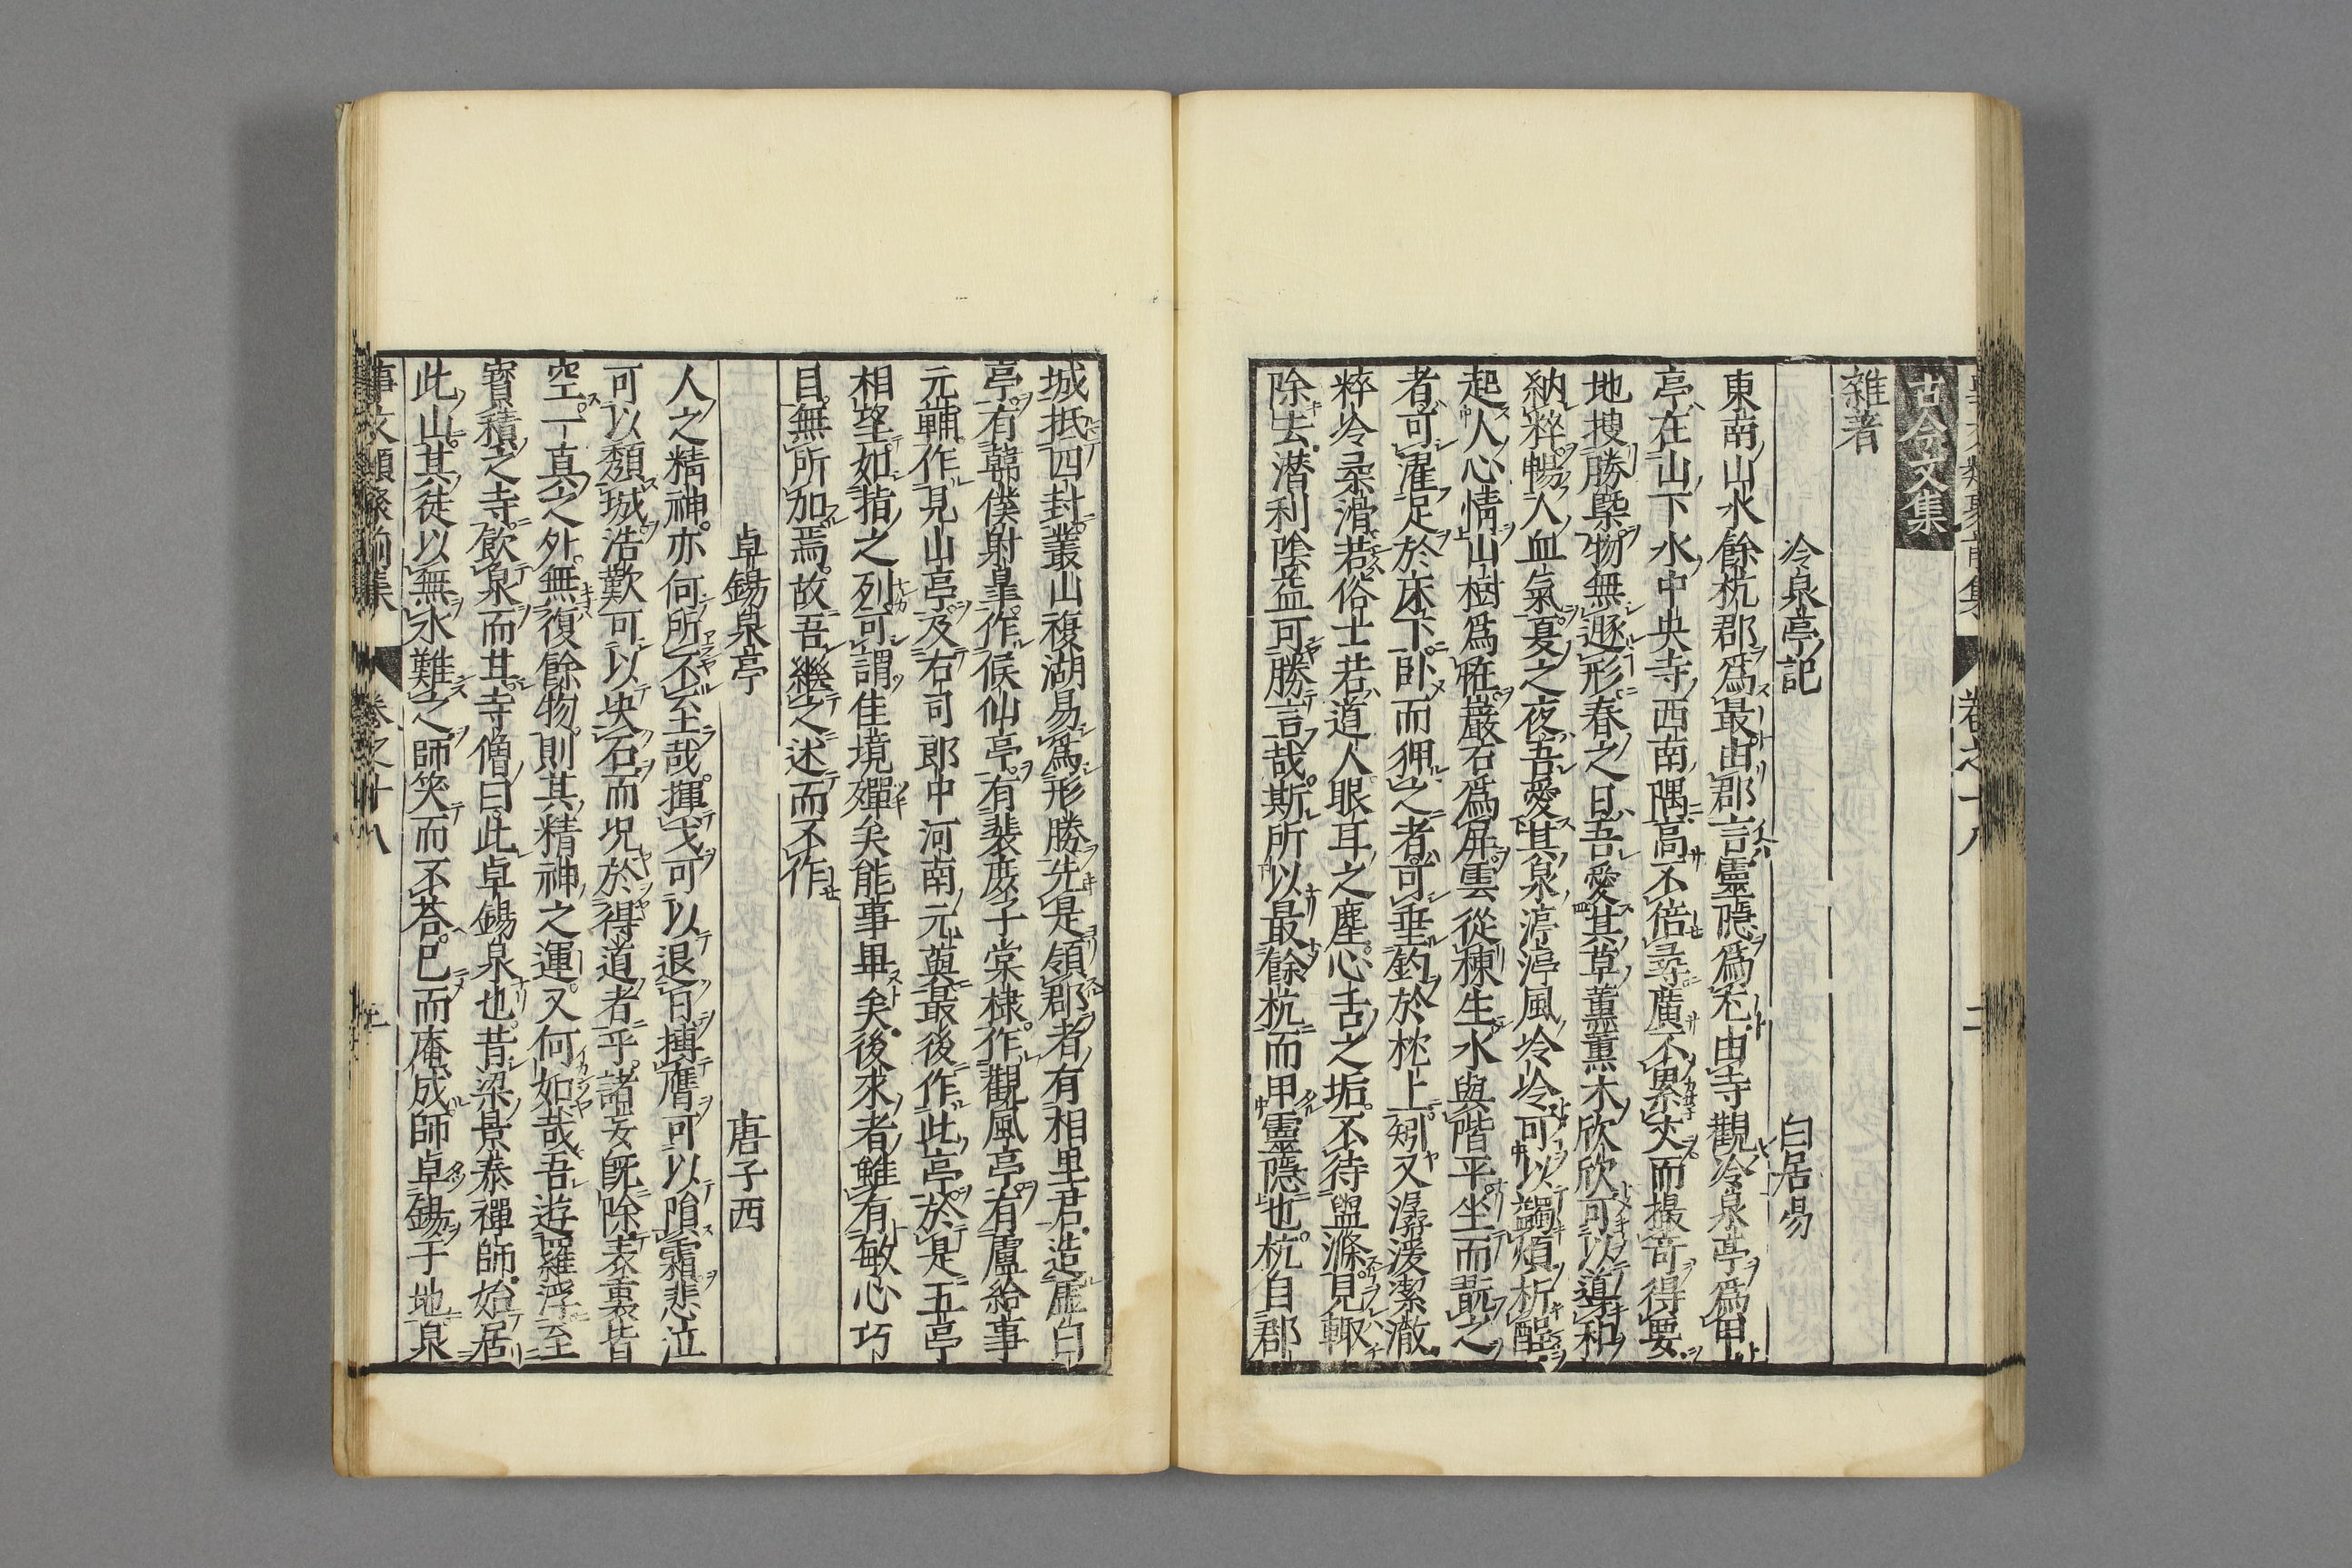 古今文集
雜著
冷泉亭記　白居易
東南山水餘杭郡爲最由郡言靈隱爲尤由寺觀冷泉亭爲甲
亭在山下水中央寺西南隅高不倍尋廣不累丈而撮竒得要
地搜勝槩物無遯形春之日吾愛其草薰薰木欣欣可以導和
納粹暢人血氣夏之夜吾愛其泉渟渟風冷冷可以蠲煩析酲
起人心情山樹爲盖巖石爲屏雲從棟生水與階平坐而翫之
者可濯足於床下卧而狎之者可垂釣於枕上矧又潺湲潔澈
粹冷柔滑若俗士若道人眼耳之塵心舌之垢不待盥滌見輙
除去潜利陰益可勝言哉斯所以最餘杭而甲靈隱也杭自郡
城抵四封叢山複湖易爲形勝先是領郡者有相里君造虚白
亭有韓僕射皐作候仙亭有裴庶子棠棣作觀風亭有盧給事
元輔作見山亭及右司郎中河南元藇最後作此亭於是五亭
相望如指之列可謂佳境殫矣能事畢矣後求者雖有敏心巧
目無所加焉故吾繼之述而不作
卓錫泉亭　唐子西
人之精神亦何所不至哉揮戈可以退日摶膺可以隕霜悲泣
可以頽城浩歎可以史石而况於得道者乎諸妄旣除表裏皆
空一真之外無復餘物則其精神之運又何如哉吾遊羅浮至
寳積之寺飲泉而甘寺僧曰此卓錫泉也昔梁景泰禪師始居
此山其徒以無水難之師笑而不荅已而庵成師卓錫于地泉
事文類聚前集　卷之十八